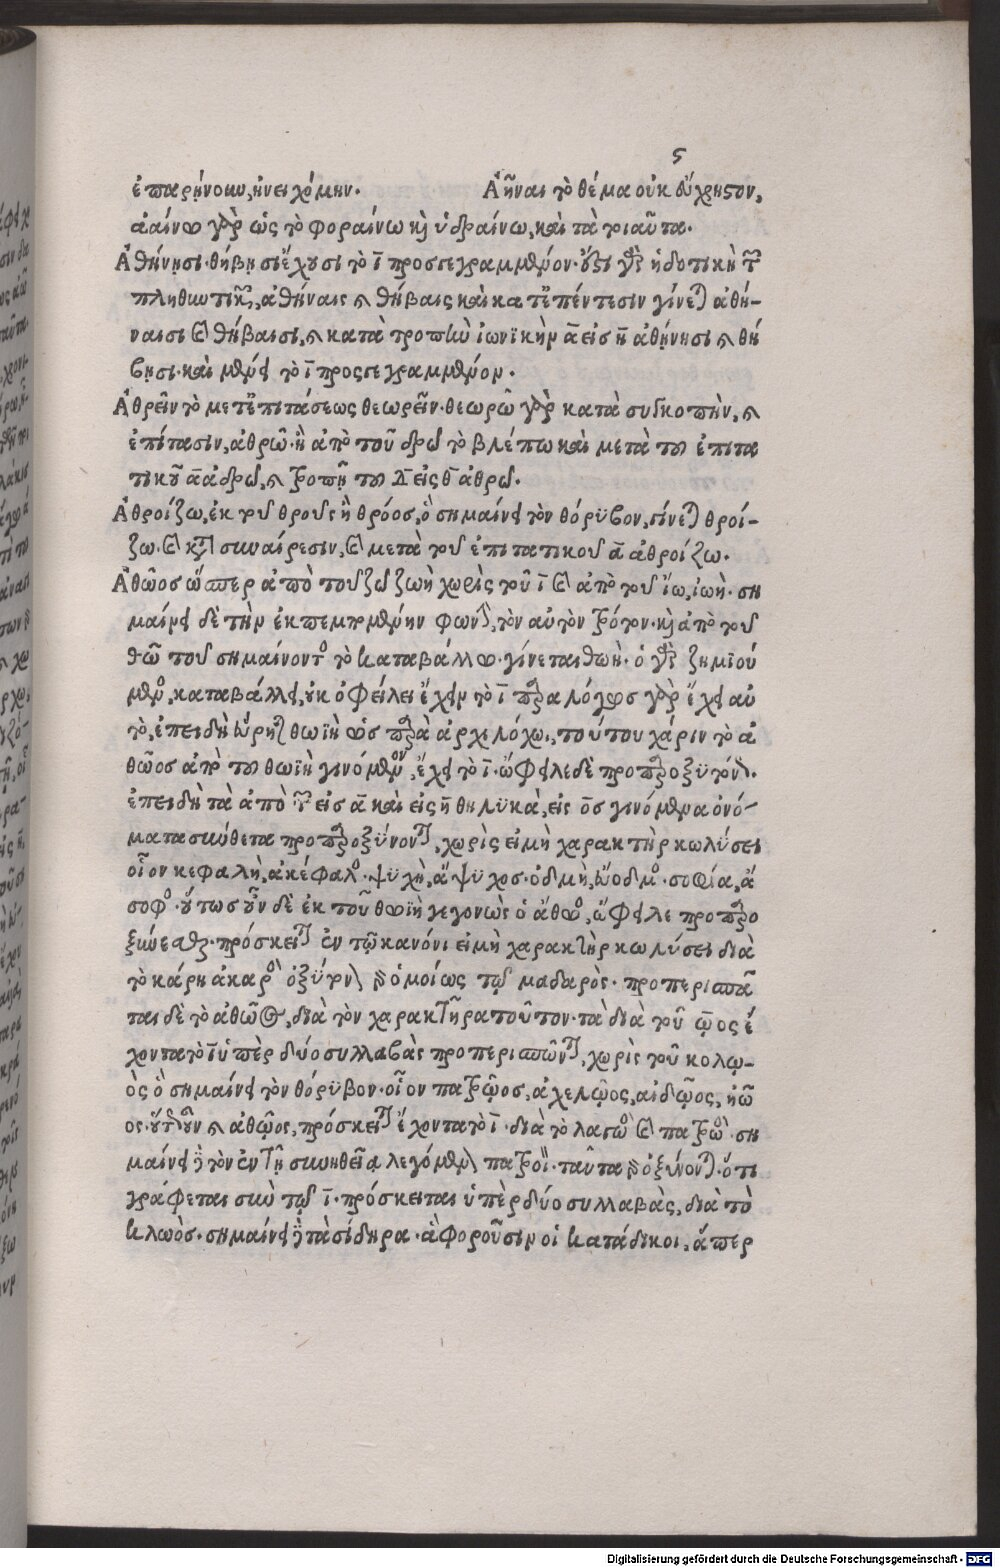 ς
ἐπαρῄνουν, ἠνειχόμην. Ἀῆναι τὸ θέμα οὐκ εὔχρηστον,
ἀαίνω γὰρ ὡς τὸ φοραίνω καὶ ὑδραίνω, καὶ τὰ τοιαῦτα.
Ἀθήνῃσι· θήβῃσι ἔχουσι τὸ ϊ προσγεγραμμένον· οὖσι γὰρ ἡ δοτικὴ τῶν
πληθυντικῶν, ἀθήναις καὶ θήβαις καὶ κατ' ἐπέντεσιν γίνεται ἀθή-
ναισι καὶ θήβαισι, καὶ κατὰ τροπὴν ἰωνϊκὴν ᾱ εἰς η̄ ἀθήνησι καὶ θή
βῃσι· καὶ μένει τὸ ϊ προσγεγραμμένον.
Ἀθρεῖν τὸ μετ' ἐπιτάσεως θεωρεῖν· θεωρῶ γὰρ κατὰ συγκοπὴν, καὶ
ἐπίτασιν, ἀθρῶ· ἢ ἀπὸ τοῦ δρῶ τὸ βλέπω καὶ μετὰ τοῦ ἐπιτα
τικοῦ ᾱ ἀδρῶ, καὶ τροπῇ τοῦ δ̄ εἰς θ̄ ἀθρῶ.
Ἀθροίζω, ἐκ τοῦ θροῦς ἢ θρόος, ὃ σημαίνει τὸν θόρυβον, γίνεται θροί-
ζω· καὶ κατὰ συναίρεσιν, καὶ μετὰ τοῦ ἐπιτατικοῦ ᾱ ἀθροίζω.
Ἀθῶος ὥσπερ ἀπὸ τοῦ ζῶ ζωὴ χωρὶς τοῦ ϊ καὶ ἀπὸ τοῦ ἴω, ἰωή· ση
μαίνει δὲ τὴν ἐκπεμπομένην φωνὴν, τὸν αὐτὸν τρόπον· καὶ ἀπὸ τοῦ
θῶ τοῦ σημαίνοντος τὸ καταβάλλω· γίνεται θωή· ὁ γὰρ ζημϊού
μενος, καταβάλλει, οὐκ ὀφείλει ἔχειν τὸ ϊ παράλογος γὰρ ἔχει αὐ
τὸ, ἐπειδὴ εὕρηται θωϊὴ ὡς παρὰ ἀρχιλόχω, τούτου χάριν τὸ ἀ
θῶος ἀπὸ τοῦ θωϊὴ γινόμενον, ἔχει τὸ ϊ· ὤφειλε δὲ προπαροξύτονον.
ἐπειδὴ τὰ ἀπὸ τῶν εἰς ᾱ καὶ εἰς η̄ θηλυκὰ, εἰς ο̄ς γινόμενα ὀνό-
ματα σύνθετα προπαροξύνονται, χωρὶς εἰ μὴ χαρακτὴρ κωλύσει
οἷον κεφαλὴ, ἀκέφαλος· ψυχὴ, ἄψυχος· ὀδμὴ, εὔοδμος· σοφία, ἄ
σοφος· οὕτως οὖν δὲ ἐκ τοῦ θωϊὴ γεγονὼς ὁ ἄθωος, ὤφειλε προπαρο
ξύνεσθαι· πρόσκειται ἐν τῷ κανόνι εἰ μὴ χαρακτὴρ κωλύσει διὰ
τὸ κάρη ἀκαρὸς ὀξύτονον ὁμοίως τῷ μαδαρὸς· προπερισπᾶ
ται δὲ τὸ ἀθῶος, διὰ τὸν χαρακτῆρα τοῦτον· τὰ διὰ τοῦ ῷος ἔ
χοντα τὸ ϊ ὑπὲρ δύο συλλαβὰς προπερισπῶνται, χωρὶς τοῦ κολῳ-
ὸς ὃ σημαίνει τὸν θόρυβον· οἷον πατρῷος, ἀχελῷος, αἰδῷος, ἡῷ
ος· οὕτως οὖν καὶ ἀθῷος, πρόσκειται ἔχοντα τὸ ϊ· διὰ τὸ λαγωὸς καὶ πατρωὸς· ση
μαίνει δὲ τὸν ἐν τῇ συνηθείᾳ λεγόμενον πατρωὸν· ταῦτα ὀξύνονται· ὅτι
γράφεται σὺν τῷ ϊ· πρόσκειται ὑπὲρ δύο συλλαβὰς, διὰ τὸ
κλωὸς· σημαίνει δὲ τὰ σίδηρα· ἃ φοροῦσιν οἱ κατάδικοι, ἅπερ
Digitalisierung gefördert durch die Deutsche Forschungsgemeinschaft - DFG